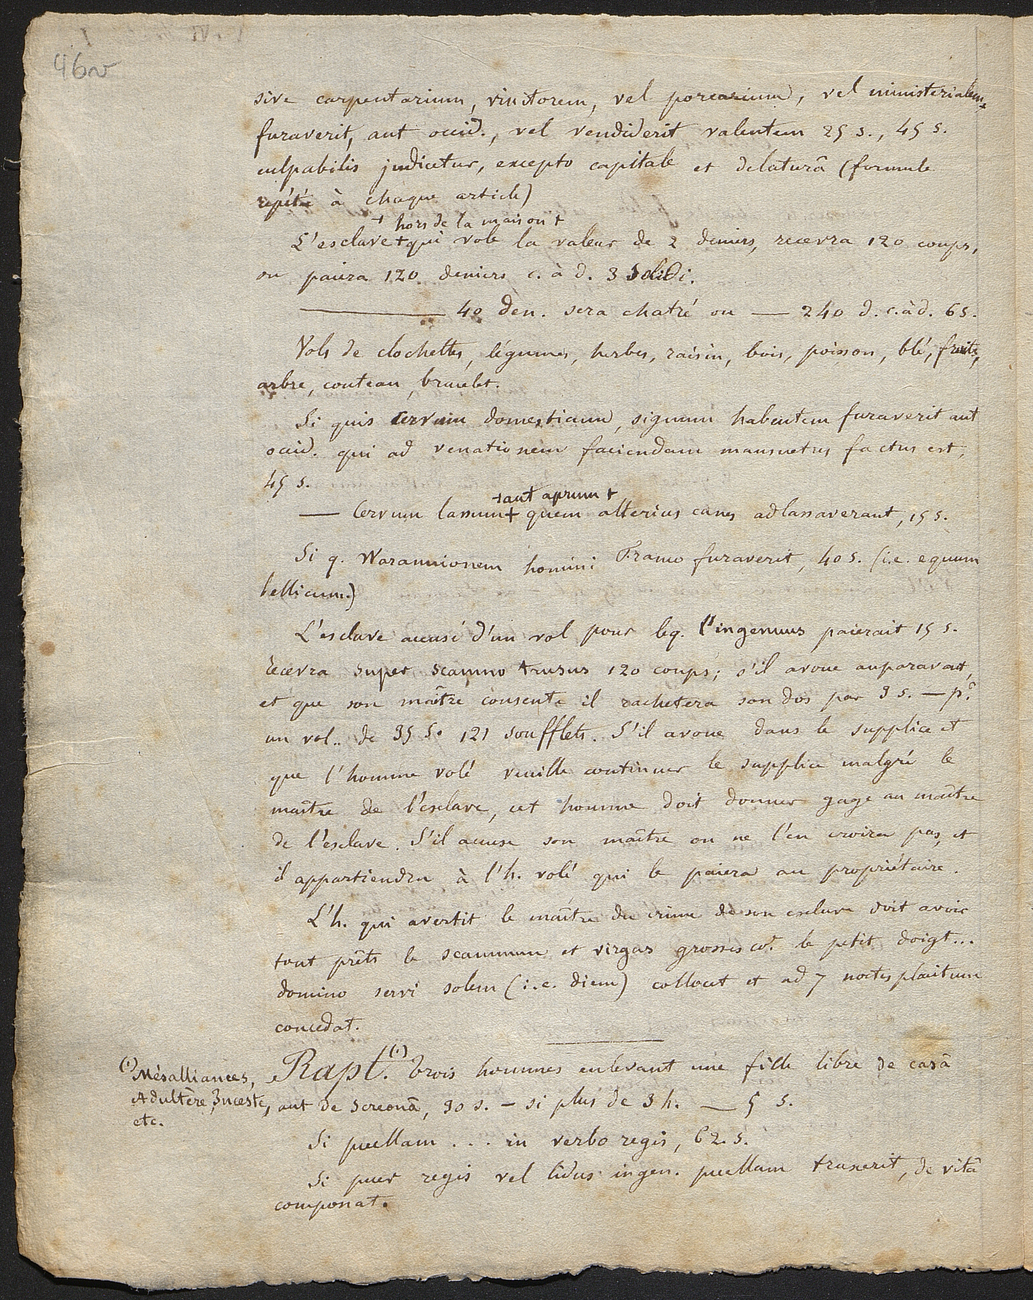 46v
sive carpentarium, vinitorem, vel porcarium, vel ministerialem,
furaverit, aut occid., vel vendiderit valentem 25 s., 45 s.
culpabilis judicetur, excepto capitale et delaturâ (formule
répétée à chaque article)
+ hors de la maison +
L'esclave + qui vole la valeur de 2 deniers, recevra 120 coups,
ou paiera 120 deniers c. à d. 3 solidi.
——— 40 den. sera chatré ou — 240 d. c. à d. 6 s.
Vols de clochettes, légumes, herbes, raisin, bois, poisson, blé, fruits,
arbre, couteau, bracelet.
Si quis cervum domesticum, signum habentem furaverit aut
occid. qui ad venationem faciendam mansuetus factus est,
45 s.
+ aut aprum +
— Cervum lassum + quem alterius canes adlassaverant, 15 s.
Si q. Waranionem homini Franco furaverit, 40 s. (i.e. equum
bellicum.)
L'esclave accusé d'un vol pour leq. l'ingenuus paierait 15 s.
recevra super scamno tensus 120 coups; s'il avoue auparavant,
et que son maître consente il rachetera son dos par 3 s. — pr.
un vol.. de 35 s. 121 soufflets. S'il avoue dans le supplice et
que l'homme volé veuille continuer le supplice malgré le
maître de l'esclave, cet homme doit donner gage au maître
de l'esclave. S'il accuse son maître on ne l'en croira pas, et
il appartiendra à l'h. volé qui le paiera au propriétaire.
L'h. qui avertit le maître du crime de son esclave doit avoir
tout prêts le scamnum et virgas grosses co. le petit doigt...
domino servi solem (i.e. diem) collocet et ad 7 noctes placitum
concedat.
Rapt. (1) trois hommes enlevant une fille libre de casâ
aut de screonâ, 30 s. — si plus de 3 h. — 5 s.
Si puellam . . . in verbo regis, 62. s.
Si puer regis vel lidus ingen. puellam traxerit, de vitâ
componat.
(1) Mésalliances,
Adultère, Inceste,
etc.